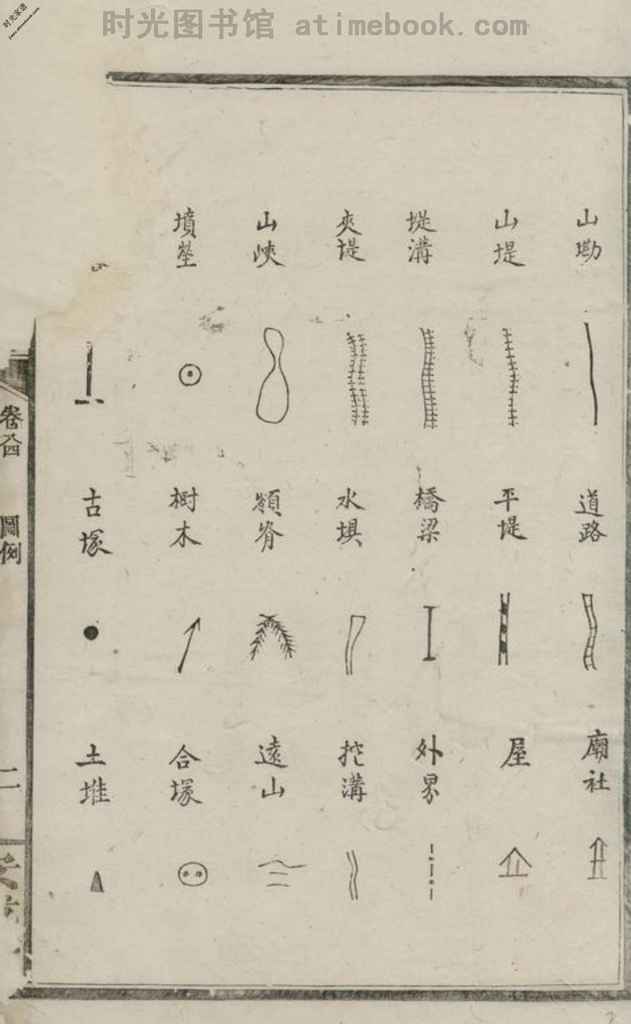 时光图书馆 atimebook.com
山坳
山堤
堤溝
夾堤
山峽
墳塋
道路
平堤
橋梁
水垻
嶺脊
樹木
古塚
廟社
屋
外界
挖溝
遠山
合塚
土堆
圖例
二